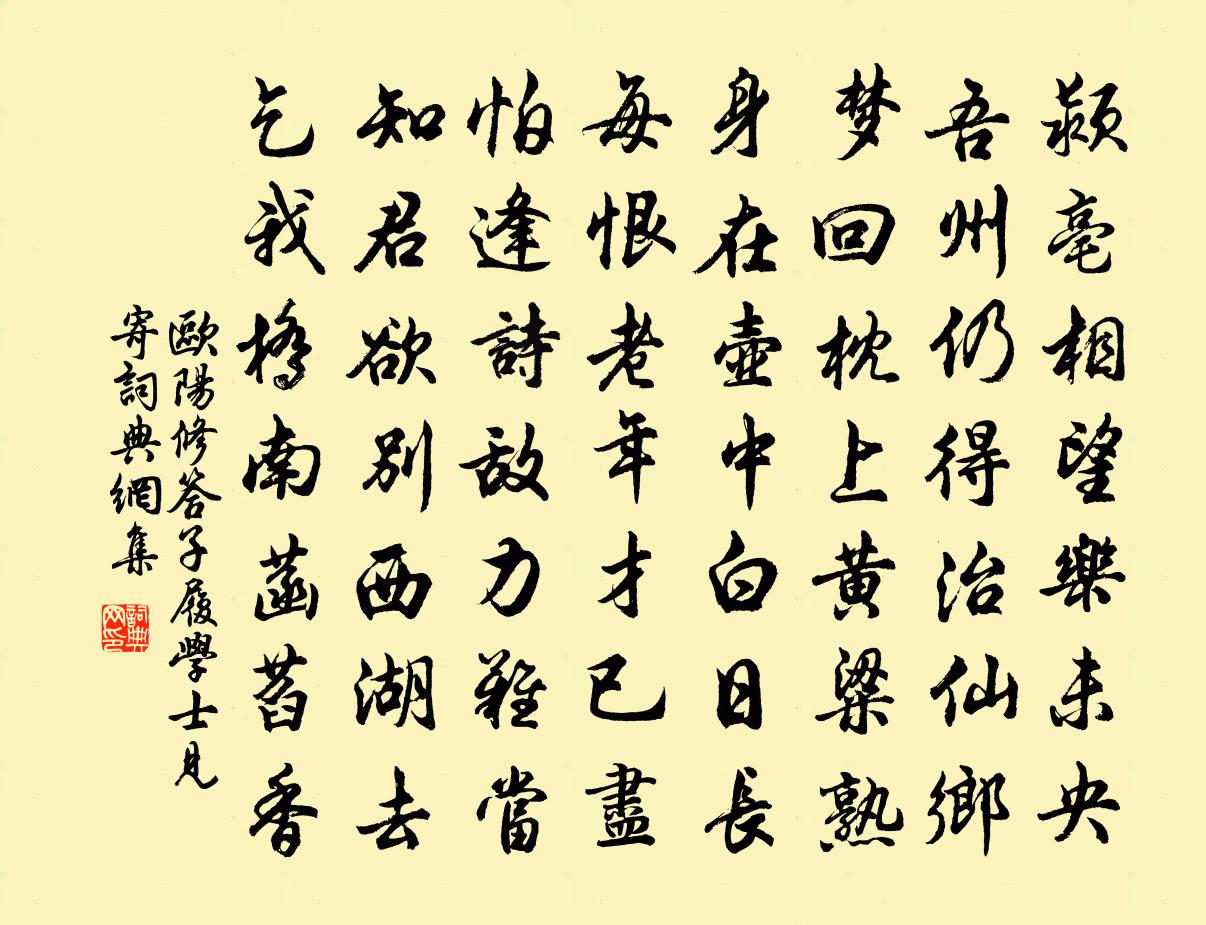 潁亳相望樂未央
吾州仍得治仙鄉
梦回枕上黄粱熟
身在壺中白日長
每恨老年才已盡
怕逢詩敌力難當
知君欲别西湖去
乞我橋南菡萏香
歐陽修答子履學士見
寄詞典網集
詞典网印